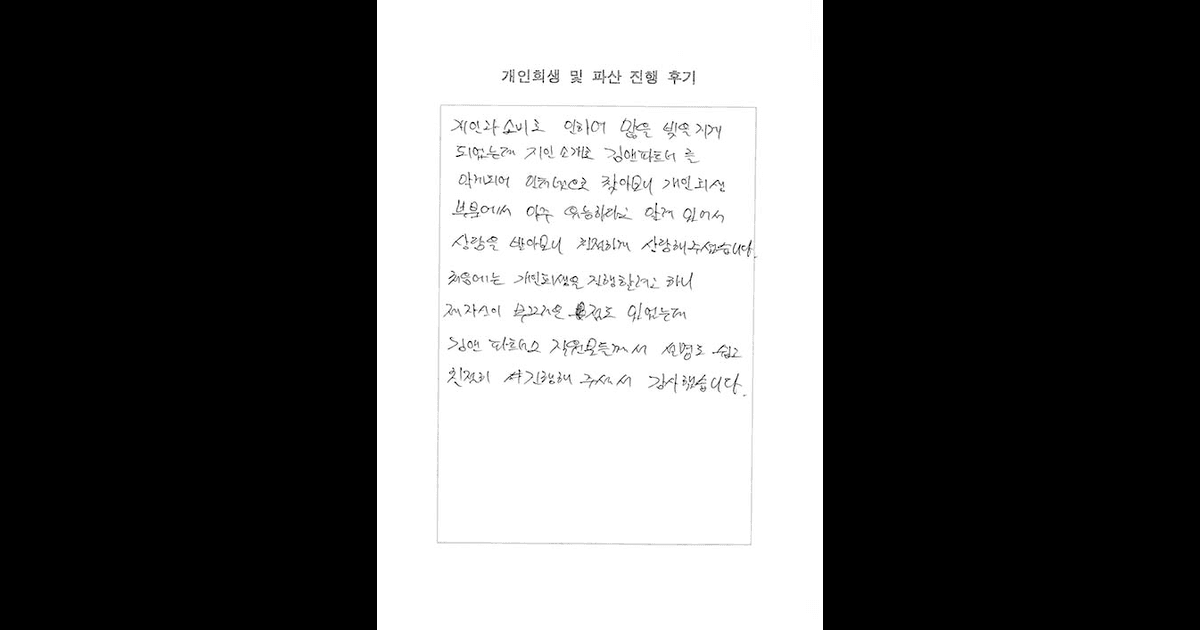 개인회생 및 파산 진행 후기
소비로 인하여 많은 빚을 지게
되었는데 지인 소개로 김앤파트너를
알게되어 인터넷으로 찾아보니 개인회생
부분에서 아주 유능하다고 알려 있어서
상담을 받아보니 친절하게 상담해주셨습니다.
처음에는 개인회생을 진행할려고 하니
제 자신이 부끄러운 점도 있었는데
김앤 파트너스 직원분들께서 설명도 쉽고
친절히 진행해 주셔서 감사했습니다.